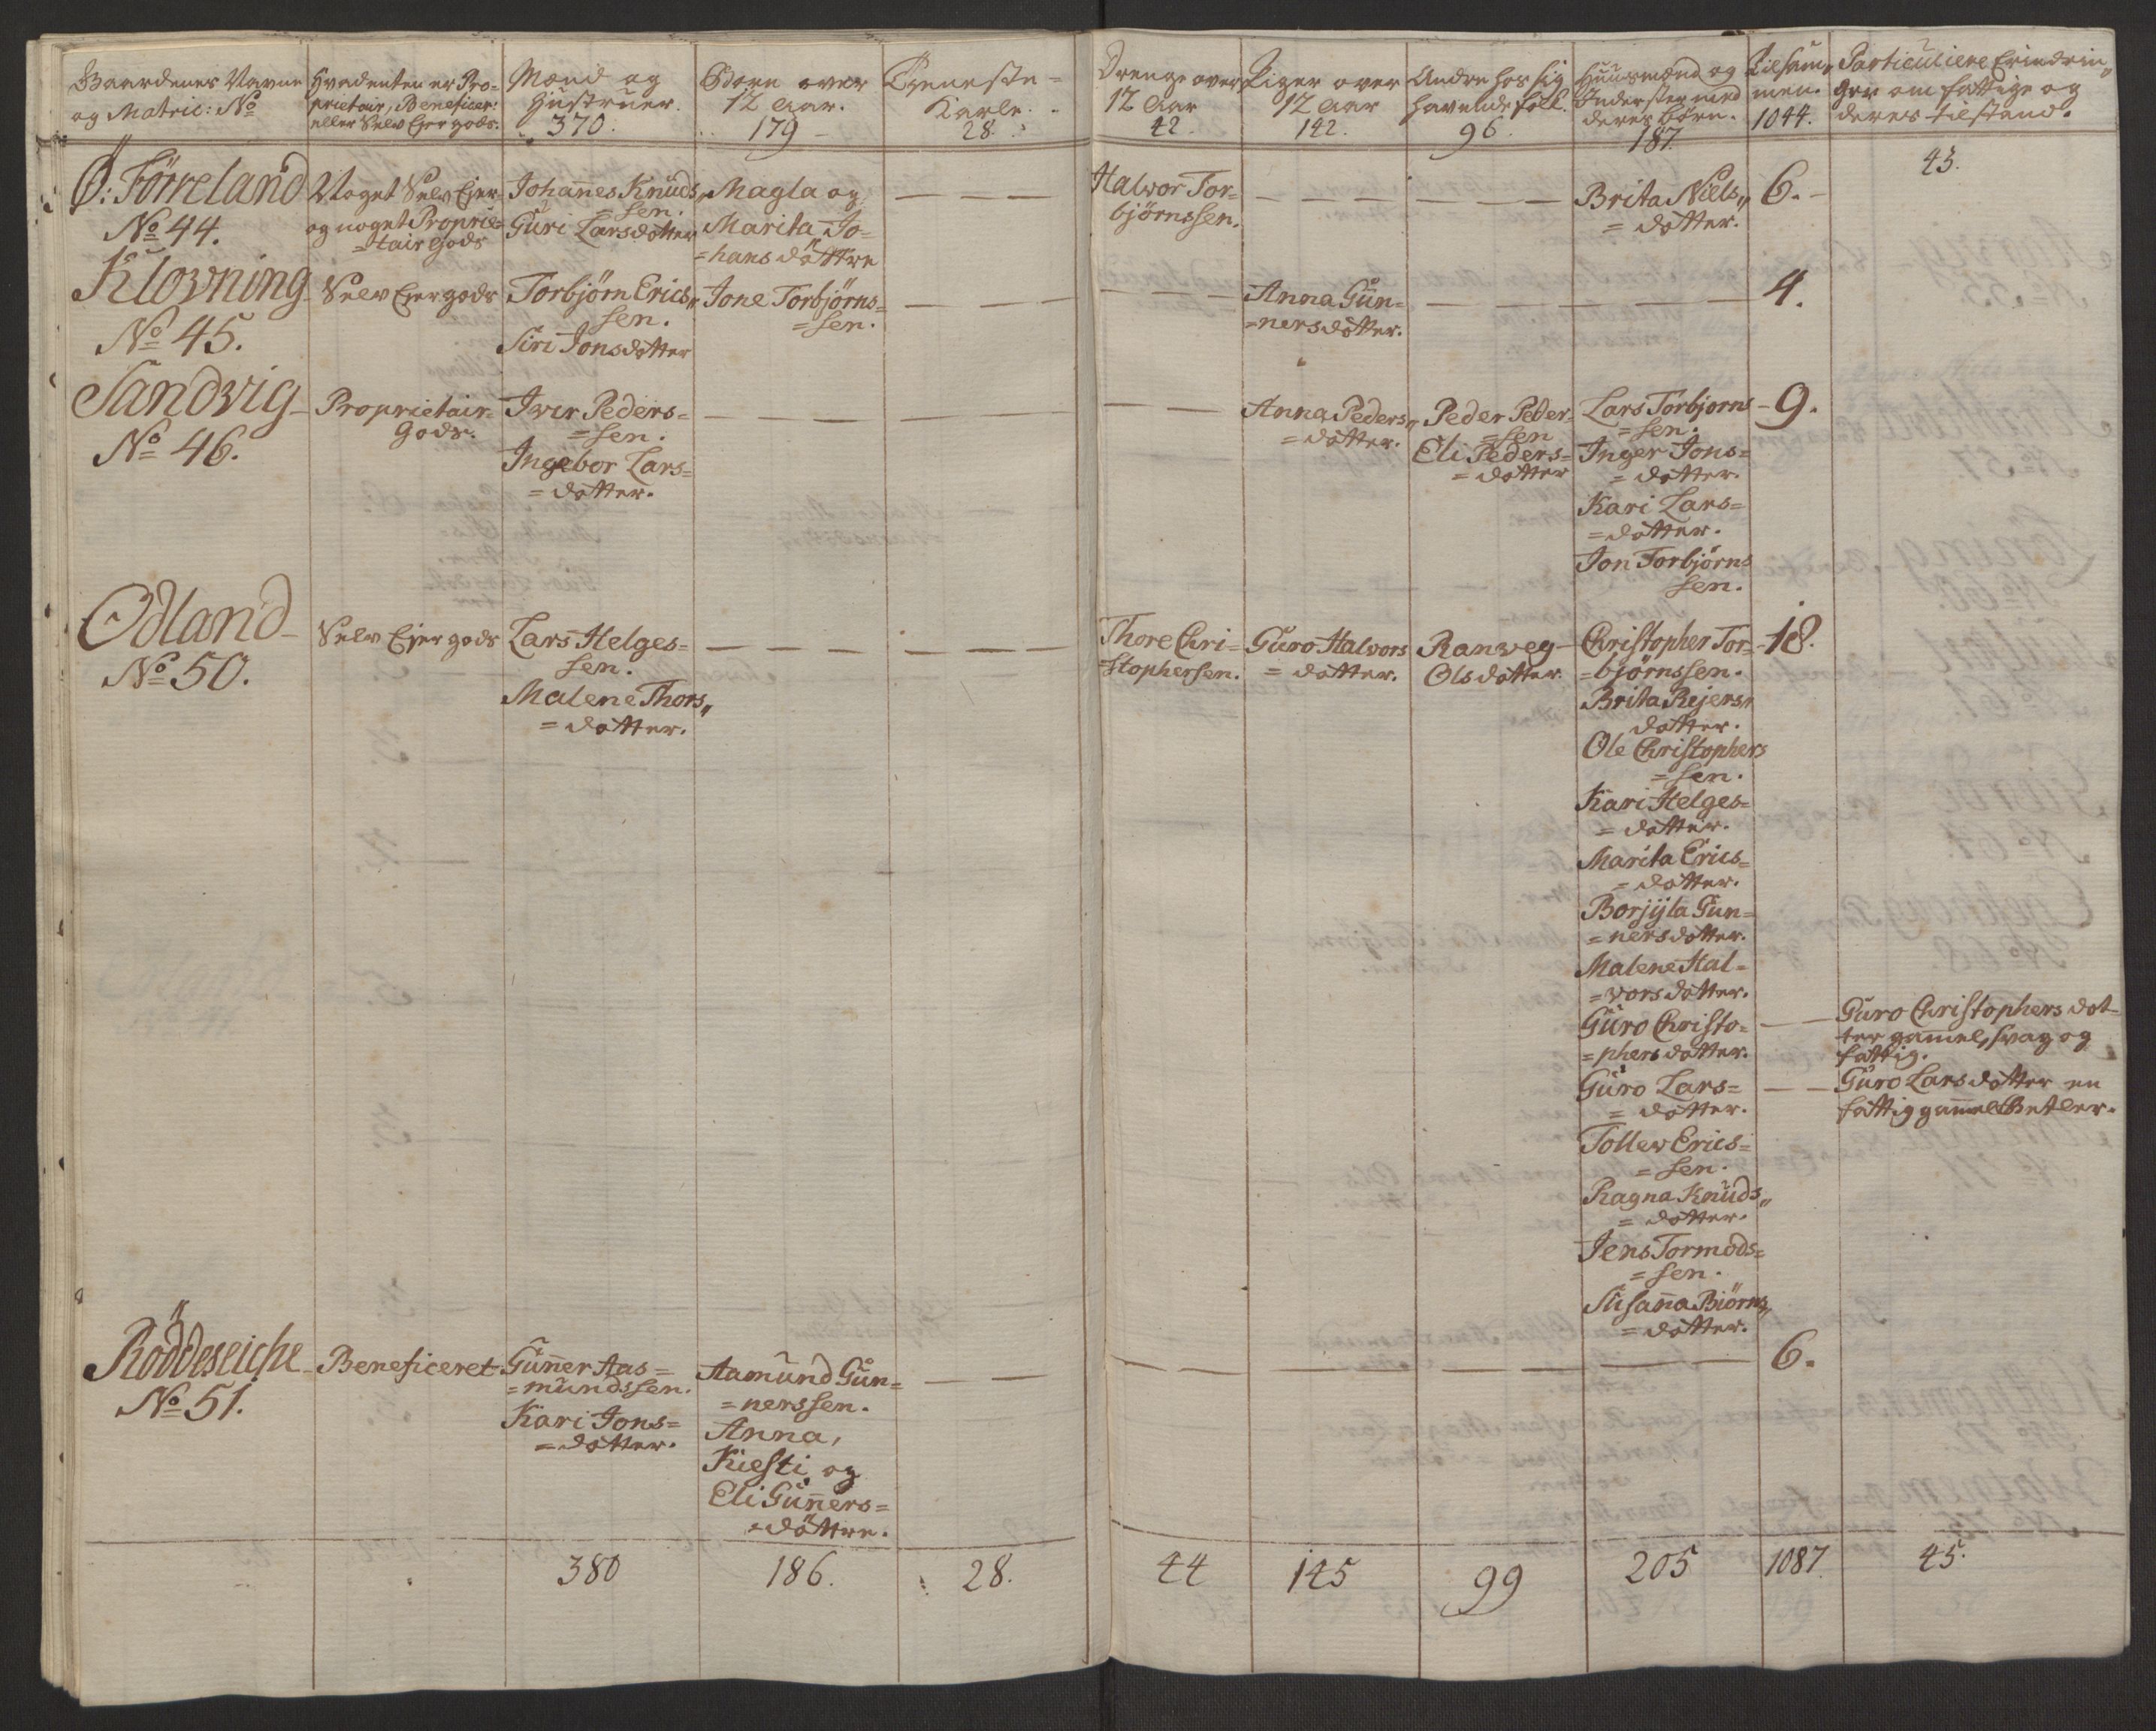 Gaardenes Navne
og Matric: No
Hvadenten er Pro-
prietair, Beneficer:
eller Selv Ejer gods.
Mænd og
Hustruer.
370.
Børn over
12 Aar.
179
Tjeneste-
Karle.
28.
Drenge over
12 Aar
42
Piger over
12 Aar
142.
Andre hos sig
havende folk.
96.
Huusmænd og
Inderster med
deres børn.
187.
Tilsam„
men.
1044.
Particuliere Erindrin„
ger om fattige og
deres tilstand.
43.
Ø: Förreland
No 44.
Noget Selv Ejer-
og noget Proprie-
=tair Gods
Johannes Knuds„
=sen.
Guri Larsdotter
Magla og
Marita Jo=
=hans döttre
Halvor Tor=
björnssen.
Brita Niels„
=dotter.
6.
Klovning
No 45.
Selv Ejer gods
Torbjörn Erics„
sen.
Siri Jonsdotter
Jone Torbjörns=
=sen.
Anna Gun=
=nersdotter.
4.
Sandvig
No 46.
Proprietair=
Gods.
Iver Peders=
=sen.
Ingebor Lars=
=dotter.
Anna Peders„
=dotter.
Peder Peder=
=sen
Eli Peders=
=dotter
Lars Torbjorns
=sen.
Inger Jons=
=dotter.
Kari Lars=
=dotter.
Jon Torbjörns
sen.
9.
Odland
No 50.
Selv Ejer gods
Lars Helges=
sen.
Malene Thors„
=dotter.
Thore Chri=
=stophersen.
Guro Halvors
=dotter.
Ranveg
Olsdotter
Christopher Tor=
=björnssen.
Brita Rejers„
dotter.
Ole Christophers
=sen.
Kari Helges=
=dotter.
Marita Erics=
=dotter.
Borjyla Gun=
=nersdotter.
Malene Hal=
=vorsdotter.
Guro Christo=
=phersdotter.
Guro Lars=
=dotter.
Tollev Erics=
=sen.
Ragna Knuds„
=dotter.
Jens Tormods=
=sen.
Susanna Biörns„
=dotter.
18.
Guro Christophers dot-
ter gammel, svag og
fattig.
Guro Larsdotter en
fattig gammel Betler.
Röddeseiche
No 51.
Beneficeret
Gunner Aas=
=mundssen.
Kari Jons=
=dotter.
Aamund Gun=
=nerssen.
Anna,
Kiesti og
Eli Gunners=
=döttre.
6.
380
186.
28.
44
145
99
205
1087.
45.